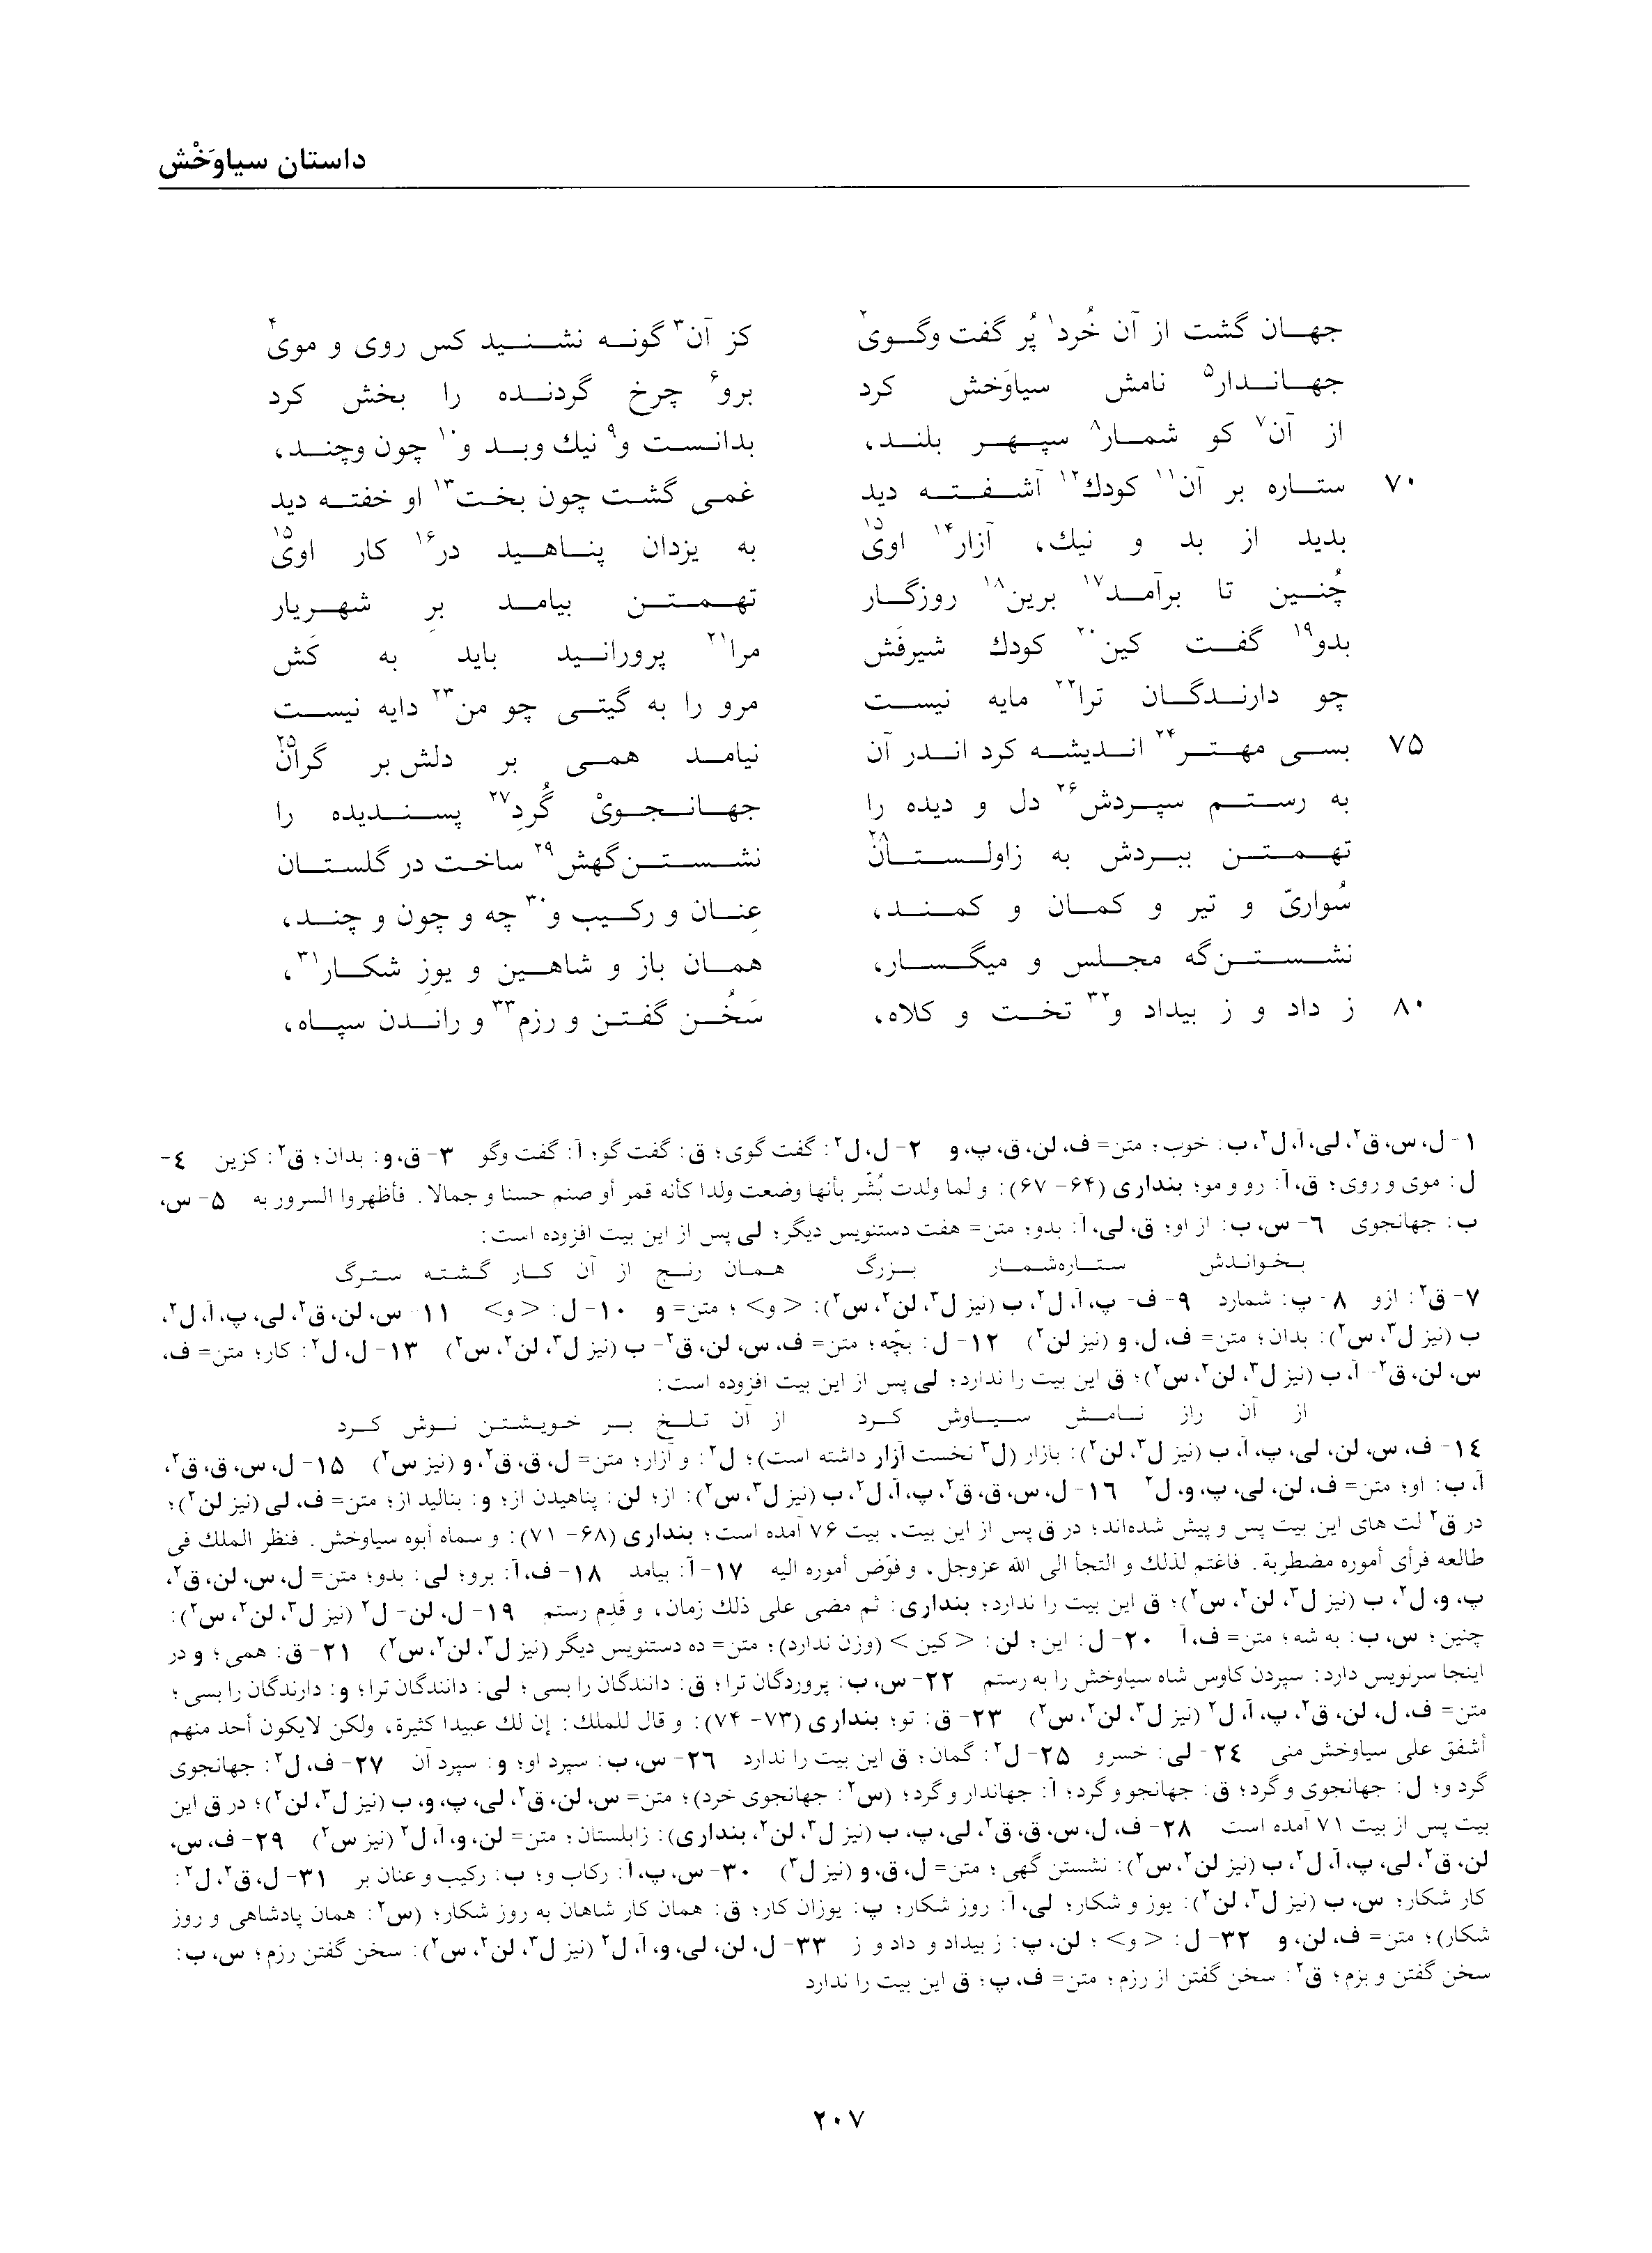 داستان سیاوَخْش
جهان گشت از آن خُرد۱ پُر گفت وگوی۲ کز آن۳ گونه نشنید کس روی و موی۴
جهاندار۵ نامش سیاوَخش کرد برو۶ چرخ گردنده را بخش کرد
از آن۷ کو شمار۸ سپهر بلند، بدانست و۹ نیك وبد و۱۰ چون وچند،
۷۰ ستاره بر آن۱۱ کودك۱۲ آشفته دید غمی گشت چون بخت۱۳ او خفته دید
بدید از بد و نیك، آزار۱۴ اوی۱۵ به یزدان پناهید در۱۶ کار اوی۱۵
چُنین تا برآمد۱۷ برین۱۸ روزگار تهمتن بیامد برِ شهریار
بدو۱۹ گفت کین۲۰ کودك شیرفَش مرا۲۱ پرورانید باید به کَش
چو دارندگان ترا۲۲ مایه نیست مرو را به گیتی چو من۲۳ دایه نیست
۷۵ بسی مهتر۲۴ اندیشه کرد اندر آن نیامد همی بر دلش بر گران۲۵
به رستم سپردش۲۶ دل و دیده را جهانجویْ گُردِ۲۷ پسندیده را
تهمتن ببردش به زاولستان۲۸ نشستن‌گهش۲۹ ساخت در گلستان
سُواریّ و تیر و کمان و کمند، عِنان و رکیب و۳۰ چه و چون و چند،
نشستن‌گه مجلس و میگسار، همان باز و شاهین و یوزِ شکار۳۱،
۸۰ ز داد و ز بیداد و۳۲ تخت و کلاه، سَخُن گفتن و رزم۳۳ و راندن سپاه،
۱- ل، س، ق۲، لی، آ، ل۲، ب: خوب؛ متن= ف، لن، ق، پ، و ۲- ل، ل۲: گفت گوی؛ ق: گفت گو؛ آ: گفت وگو ۳- ق، و: بدان؛ ق۲: کزین ٤-
ل: موی و روی؛ ق، آ: رو و مو؛ بنداری (۶۴- ۶۷): و لما ولدت بُشّر بأنها وضعت ولدا کأنه قمر أو صنم حسنا و جمالا. فأظهروا السرور به ۵- س،
ب: جهانجوی ٦- س، ب: از او؛ ق، لی، آ: بدو؛ متن= هفت دستنویس دیگر؛ لی پس از این بیت افزوده است:
بخواندش ستاره‌شمار بزرگ همان رنج از آن کار گشته سترگ
۷- ق۲: ازو ۸- پ: شمارد ۹- ف- پ، آ، ل۲، ب (نیز ل۳، لن۲، س۲): <و>؛ متن= و ۱۰- ل: <و> ۱۱- س، لن، ق۲، لی، پ، آ، ل۲،
ب (نیز ل۳، س۲): بدان؛ متن= ف، ل، و (نیز لن۲) ۱۲- ل: بچّه؛ متن= ف، س، لن، ق۲- ب (نیز ل۳، لن۲، س۲) ۱۳- ل، ل۲: کار؛ متن= ف،
س، لن، ق۲- آ، ب (نیز ل۳، لن۲، س۲)؛ ق این بیت را ندارد؛ لی پس از این بیت افزوده است:
از آن راز نامش سیاوش کرد از آن تلخ بر خویشتن نوش کرد
۱٤- ف، س، لن، لی، پ، آ، ب (نیز ل۳، لن۲): بازار (ل۳ نخست آزار داشته است)؛ ل۲: و آزار؛ متن= ل، ق، ق۲، و (نیز س۲) ۱۵- ل، س، ق، ق۲،
آ، ب: او؛ متن= ف، لن، لی، پ، و، ل۲ ۱٦- ل، س، ق، ق۲، پ، آ، ل۲، ب (نیز ل۳، س۲): از؛ لن: پناهیدن از؛ و: بنالید از؛ متن= ف، لی (نیز لن۲)؛
در ق۲ لت های این بیت پس و پیش شده‌اند؛ در ق پس از این بیت، بیت ۷۶ آمده است؛ بنداری (۶۸- ۷۱): و سماه أبوه سیاوخش. فنظر الملك فی
طالعه فرأی أموره مضطربة. فاغتم لذلك و التجأ الی الله عزوجل، و فوّض أموره الیه ۱۷- آ: بیامد ۱۸- ف، آ: برو؛ لی: بدو؛ متن= ل، س، لن، ق۲،
پ، و، ل۲، ب (نیز ل۳، لن۲، س۲)؛ ق این بیت را ندارد؛ بنداری: ثم مضی علی ذلك زمان، و قدِم رستم ۱۹- ل، لن- ل۲ (نیز ل۳، لن۲، س۲):
چنین؛ س، ب: به شه؛ متن= ف، آ ۲۰- ل: این؛ لن: <کین> (وزن ندارد)؛ متن= ده دستنویس دیگر (نیز ل۳، لن۲، س۲) ۲۱- ق: همی؛ و در
اینجا سرنویس دارد: سپردن کاوس شاه سیاوخش را به رستم ۲۲- س، ب: پروردگان ترا؛ ق: دانندگان را بسی؛ لی: دانندگان ترا؛ و: دارندگان را بسی؛
متن= ف، ل، لن، ق۲، پ، آ، ل۲ (نیز ل۳، لن۲، س۲) ۲۳- ق: تو؛ بنداری (۷۳- ۷۴): و قال للملك: إن لك عبیدا کثیرة، ولکن لایکون أحد منهم
أشفق علی سیاوخش منی ۲٤- لی: خسرو ۲۵- ل۲: گمان؛ ق این بیت را ندارد ۲٦- س، ب: سپرد او؛ و: سپرد آن ۲۷- ف، ل۲: جهانجوی
گرد و؛ ل: جهانجوی و گرد؛ ق: جهانجو و گرد؛ آ: جهاندار و گرد؛ (س۲: جهانجوی خرد)؛ متن= س، لن، ق۲، لی، پ، و، ب (نیز ل۳، لن۲)؛ در ق این
بیت پس از بیت ۷۱ آمده است ۲۸- ف، ل، س، ق، ق۲، لی، پ، ب (نیز ل۳، لن۲، بنداری): زابلستان؛ متن= لن، و، آ، ل۲ (نیز س۲) ۲۹- ف، س،
لن، ق۲، لی، پ، آ، ل۲، ب (نیز لن۲، س۲): نشستن گهی؛ متن= ل، ق، و (نیز ل۳) ۳۰- س، پ، آ: رکاب و؛ ب: رکیب و عنان بر ۳۱- ل، ق۲، ل۲:
کار شکار؛ س، ب (نیز ل۳، لن۲): یوز و شکار؛ لی، آ: روز شکار؛ پ: یوزان کار؛ ق: همان کار شاهان به روز شکار؛ (س۲: همان پادشاهی و روز
شکار)؛ متن= ف، لن، و ۳۲- ل: <و>؛ لن، پ: ز بیداد و داد و ز ۳۳- ل، لن، لی، و، آ، ل۲ (نیز ل۳، لن۲، س۲): سخن گفتن رزم؛ س، ب:
سخن گفتن و بزم؛ ق۲: سخن گفتن از رزم؛ متن= ف، پ؛ ق این بیت را ندارد
۲۰۷